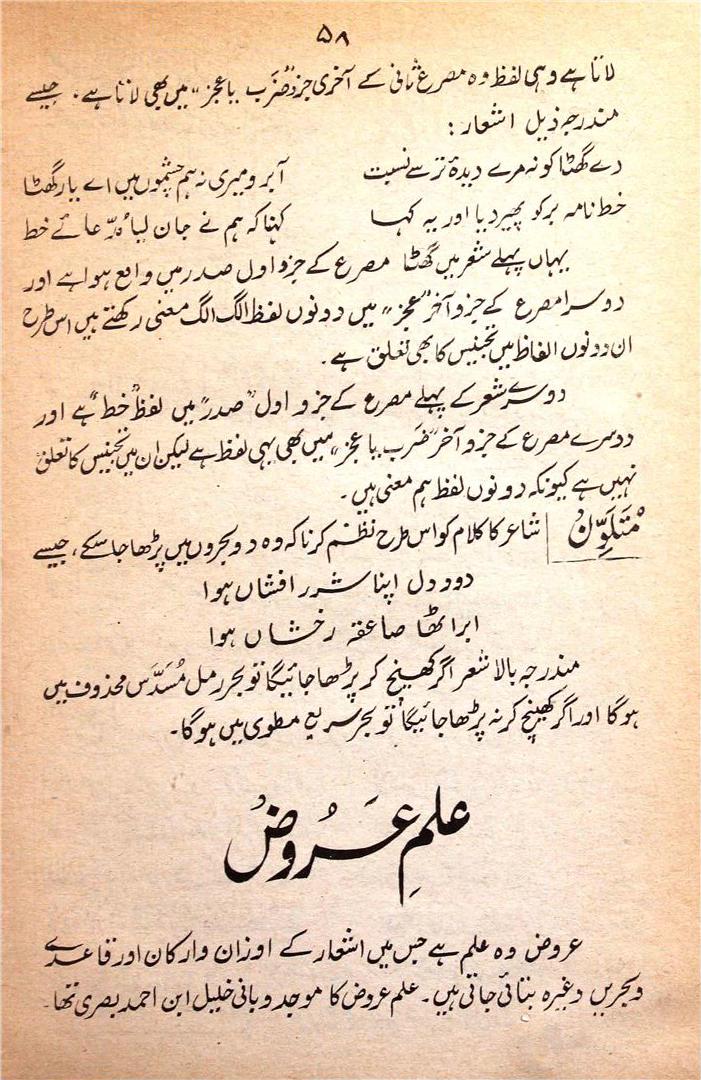 ۵۸
لاتا ہے وہی لفظ وہ مصرعِ ثانی کے آخری جزو "ضَرَب یا عجز" میں بھی لاتا ہے۔ جیسے
مندرجہ ذیل اشعار :
دے گھٹا کو نہ مرے دیدۂ تر سے نسبت آبرو میری نہ ہم چشموں میں اے یار گھٹا
خط نامہ بر کو پھیر دیا اور یہ کہا کہنا کہ ہم نے جان لیا مُدّعائے خط
یہاں پہلے شعر میں گھٹا مصرع کے جزو اول صدر میں واقع ہوا ہے اور
دوسرا مصرع کے جزو آخر "عجز" میں دونوں لفظ الگ الگ معنی رکھتے ہیں اس طرح
ان دونوں الفاظ میں تجنیس کا بھی تعلق ہے۔
دوسرے شعر کے پہلے مصرع کے جزو اول "صدر" میں لفظ "خط" ہے اور
دوسرے مصرع کے جزو آخر "ضَرب یا عجز" میں بھی یہی لفظ ہے لیکن ان میں تجنیس کا تعلق
نہیں ہے کیونکہ دونوں لفظ ہم معنی ہیں۔
مُتَلَوِّن شاعر کا کلام کو اس طرح نظم کرنا کہ وہ دو بحروں میں پڑھا جا سکے، جیسے
دودِ دل اپنا شرر افشاں ہوا
ابر اٹھا صاعقہ رخشاں ہوا
مندرجہ بالا شعر اگر کھینچ کر پڑھا جائیگا تو بحر رمل مُسَدَّس محذوف میں
ہوگا اور اگر کھینچ کر نہ پڑھا جائیگا تو بحر سریع مطوی میں ہوگا۔
علمِ عَرُوض
عروض وہ علم ہے جس میں اشعار کے اوزان و ارکان اور قاعدے
و بحریں وغیرہ بتائی جاتی ہیں۔ علم عروض کا موجد و بانی خلیل ابن احمد بصری تھا۔